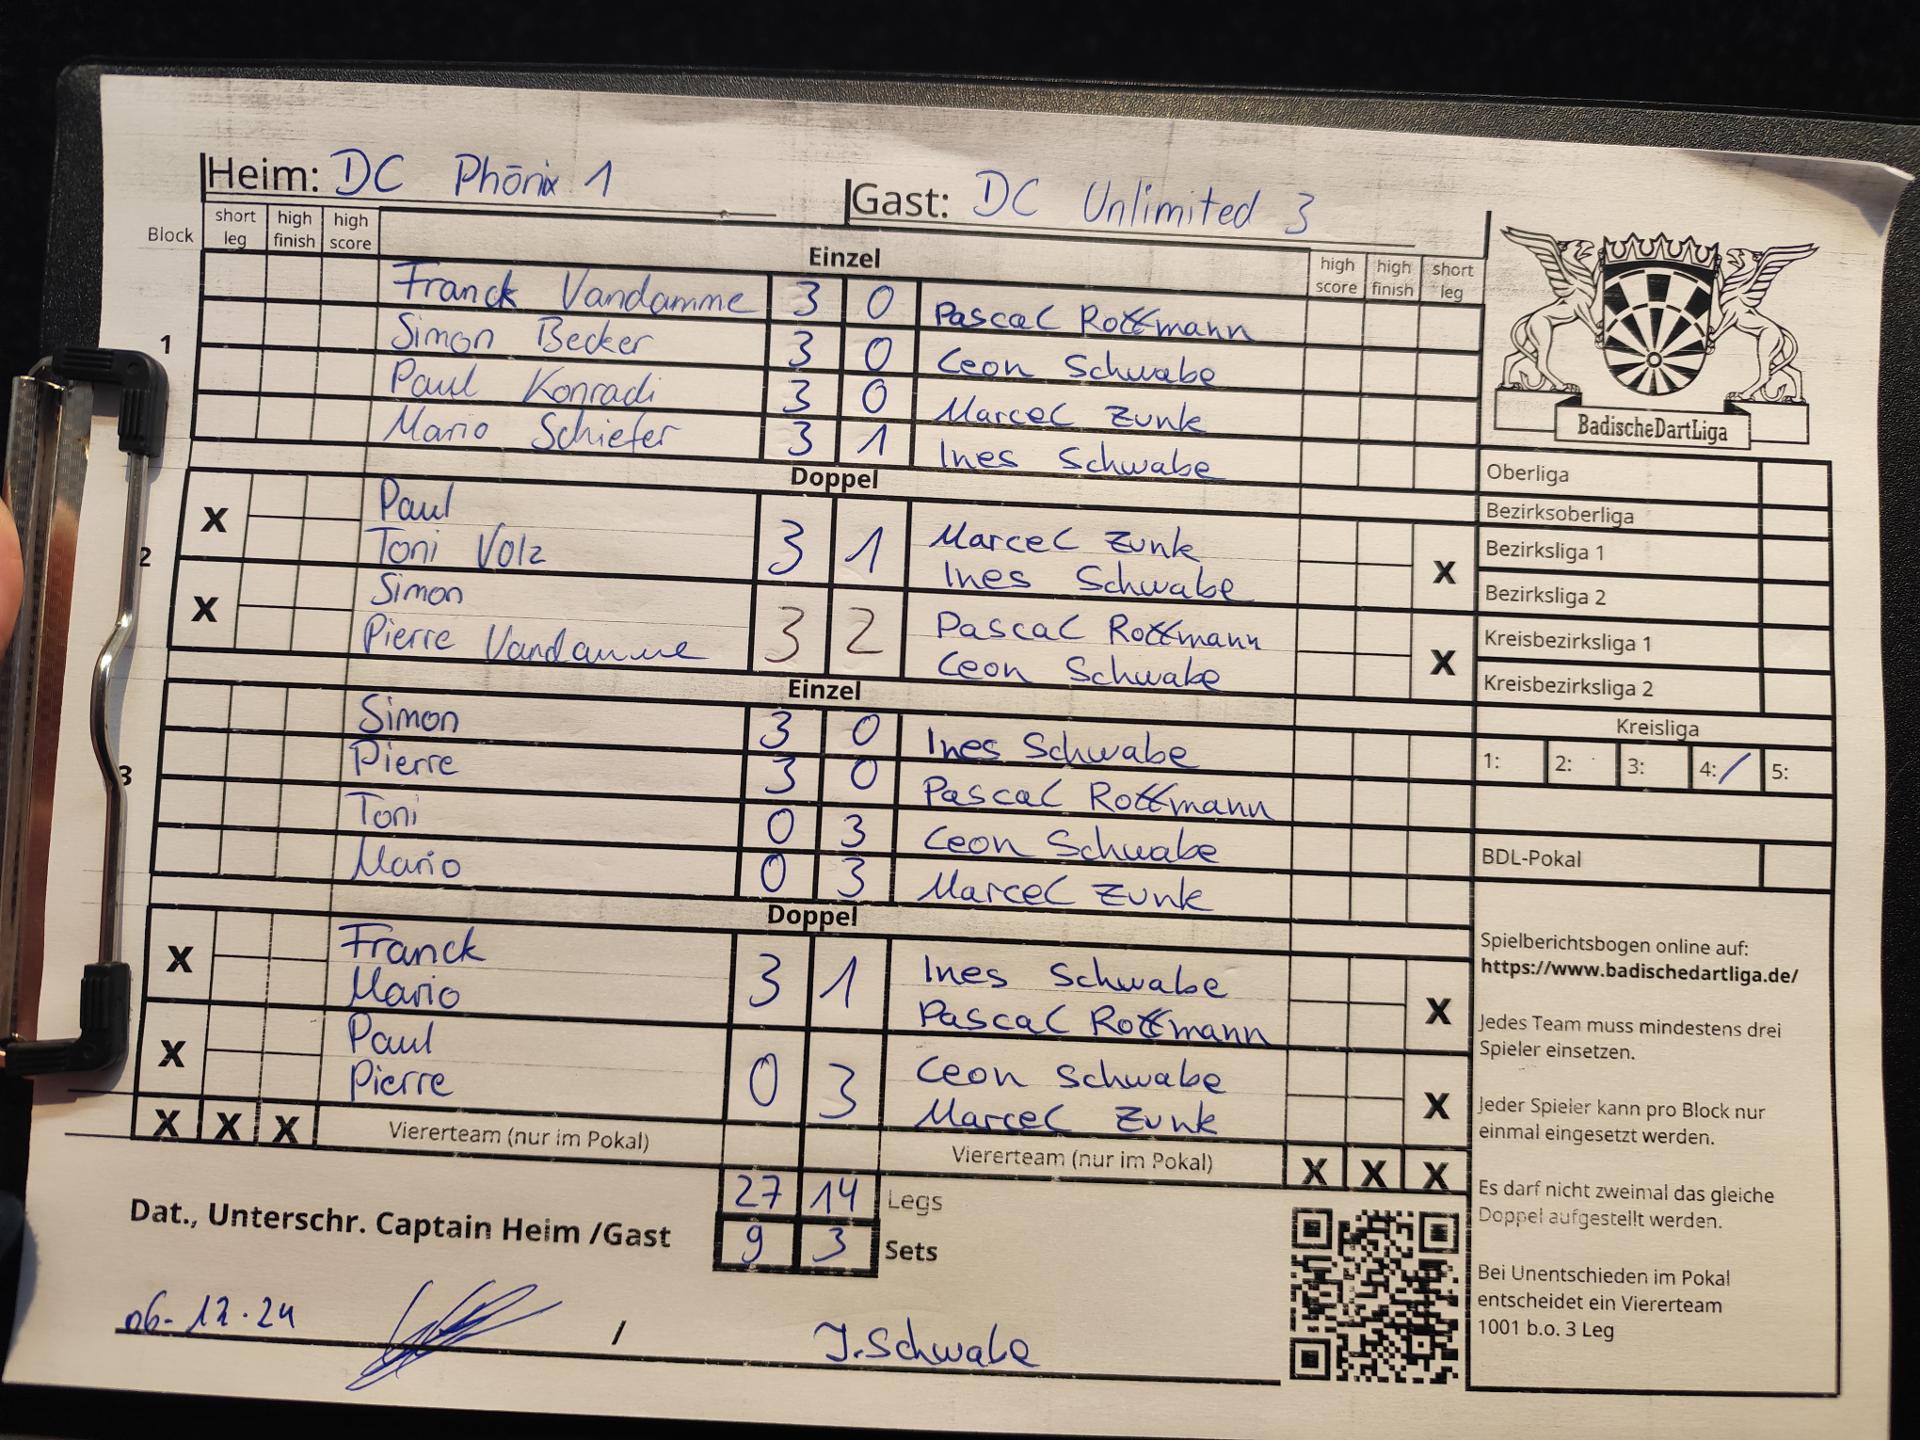 Heim: DC Phönix 1
Gast: DC Unlimited 3
Block short leg high finish high score
Einzel
high score high finish short leg
1
Franck Vandamme 3 0 Pascal Rottmann
Simon Becker 3 0 Leon Schwabe
Paul Konradi 3 0 Marcel Zunk
Mario Schiefer 3 1 Ines Schwabe
Doppel
2
X Paul 3 1 Marcel Zunk X
Toni Volz Ines Schwabe
X Simon 3 2 Pascal Rottmann X
Pierre Vandamme Leon Schwabe
Einzel
3
Simon 3 0 Ines Schwabe
Pierre 3 0 Pascal Rottmann
Toni 0 3 Leon Schwabe
Mario 0 3 Marcel Zunk
Doppel
X Franck 3 1 Ines Schwabe X
Mario Pascal Rottmann
X Paul 0 3 Leon Schwabe X
Pierre Marcel Zunk
X X X Viererteam (nur im Pokal) Viererteam (nur im Pokal) X X X
27 14 Legs
9 3 Sets
Dat., Unterschr. Captain Heim /Gast
06.12.24 / I. Schwabe
BadischeDartLiga
Oberliga
Bezirksoberliga
Bezirksliga 1
Bezirksliga 2
Kreisbezirksliga 1
Kreisbezirksliga 2
Kreisliga
1: 2: 3: 4: / 5:
BDL-Pokal
Spielberichtsbogen online auf:
https://www.badischedartliga.de/
Jedes Team muss mindestens drei
Spieler einsetzen.
Jeder Spieler kann pro Block nur
einmal eingesetzt werden.
Es darf nicht zweimal das gleiche
Doppel aufgestellt werden.
Bei Unentschieden im Pokal
entscheidet ein Viererteam
1001 b.o. 3 Leg